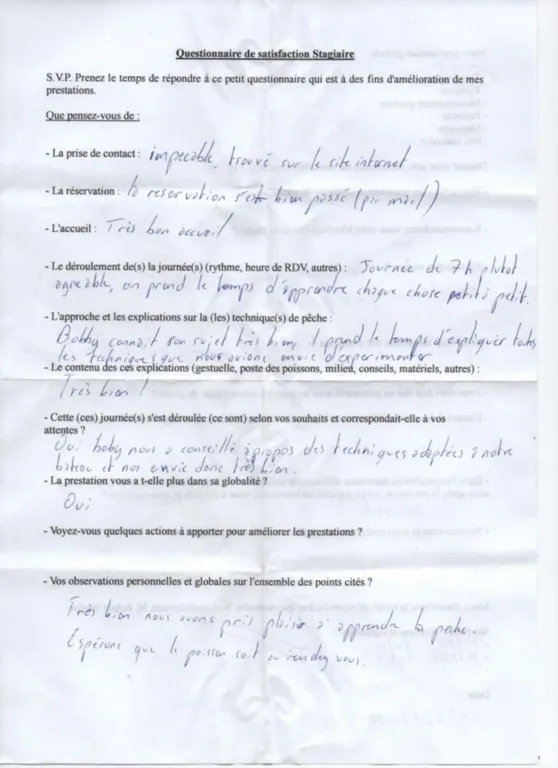 Questionnaire de satisfaction Stagiaire
S.V.P. Prenez le temps de répondre à ce petit questionnaire qui est à des fins d'amélioration de mes
prestations.
Que pensez-vous de :
- La prise de contact : impecable, trouvé sur le site internet
- La réservation : la reservation s'est bien passé (par mail)
- L'accueil : Très bon accueil
- Le déroulement de(s) la journée(s) (rythme, heure de RDV, autres) : Journée de 7h plutot
agreable, on prend le temps d'apprendre chaque chose petit à petit.
- L'approche et les explications sur la (les) technique(s) de pêche :
Bobby connait son sujet très bien, il prend le temps d'expliquer toutes
les techniques que nous avions envie d'experimenter
- Le contenu des ces explications (gestuelle, poste des poissons, milieu, conseils, matériels, autres) :
Très bien !
- Cette (ces) journée(s) s'est déroulée (ce sont) selon vos souhaits et correspondait-elle à vos
attentes ?
Oui boby nous a conseillé à propos des techniques adaptées à notre
bateau et nos envie donc très bien.
- La prestation vous a t-elle plus dans sa globalité ?
Oui
- Voyez-vous quelques actions à apporter pour améliorer les prestations ?
- Vos observations personnelles et globales sur l'ensemble des points cités ?
Très bien nous avons pris plaisir à apprendre la peche.
Espérons que le poisson soit au rendez vous.